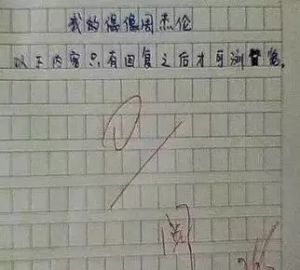 我的偶像周杰伦
以下内容只有回复之后才可浏览。
阅